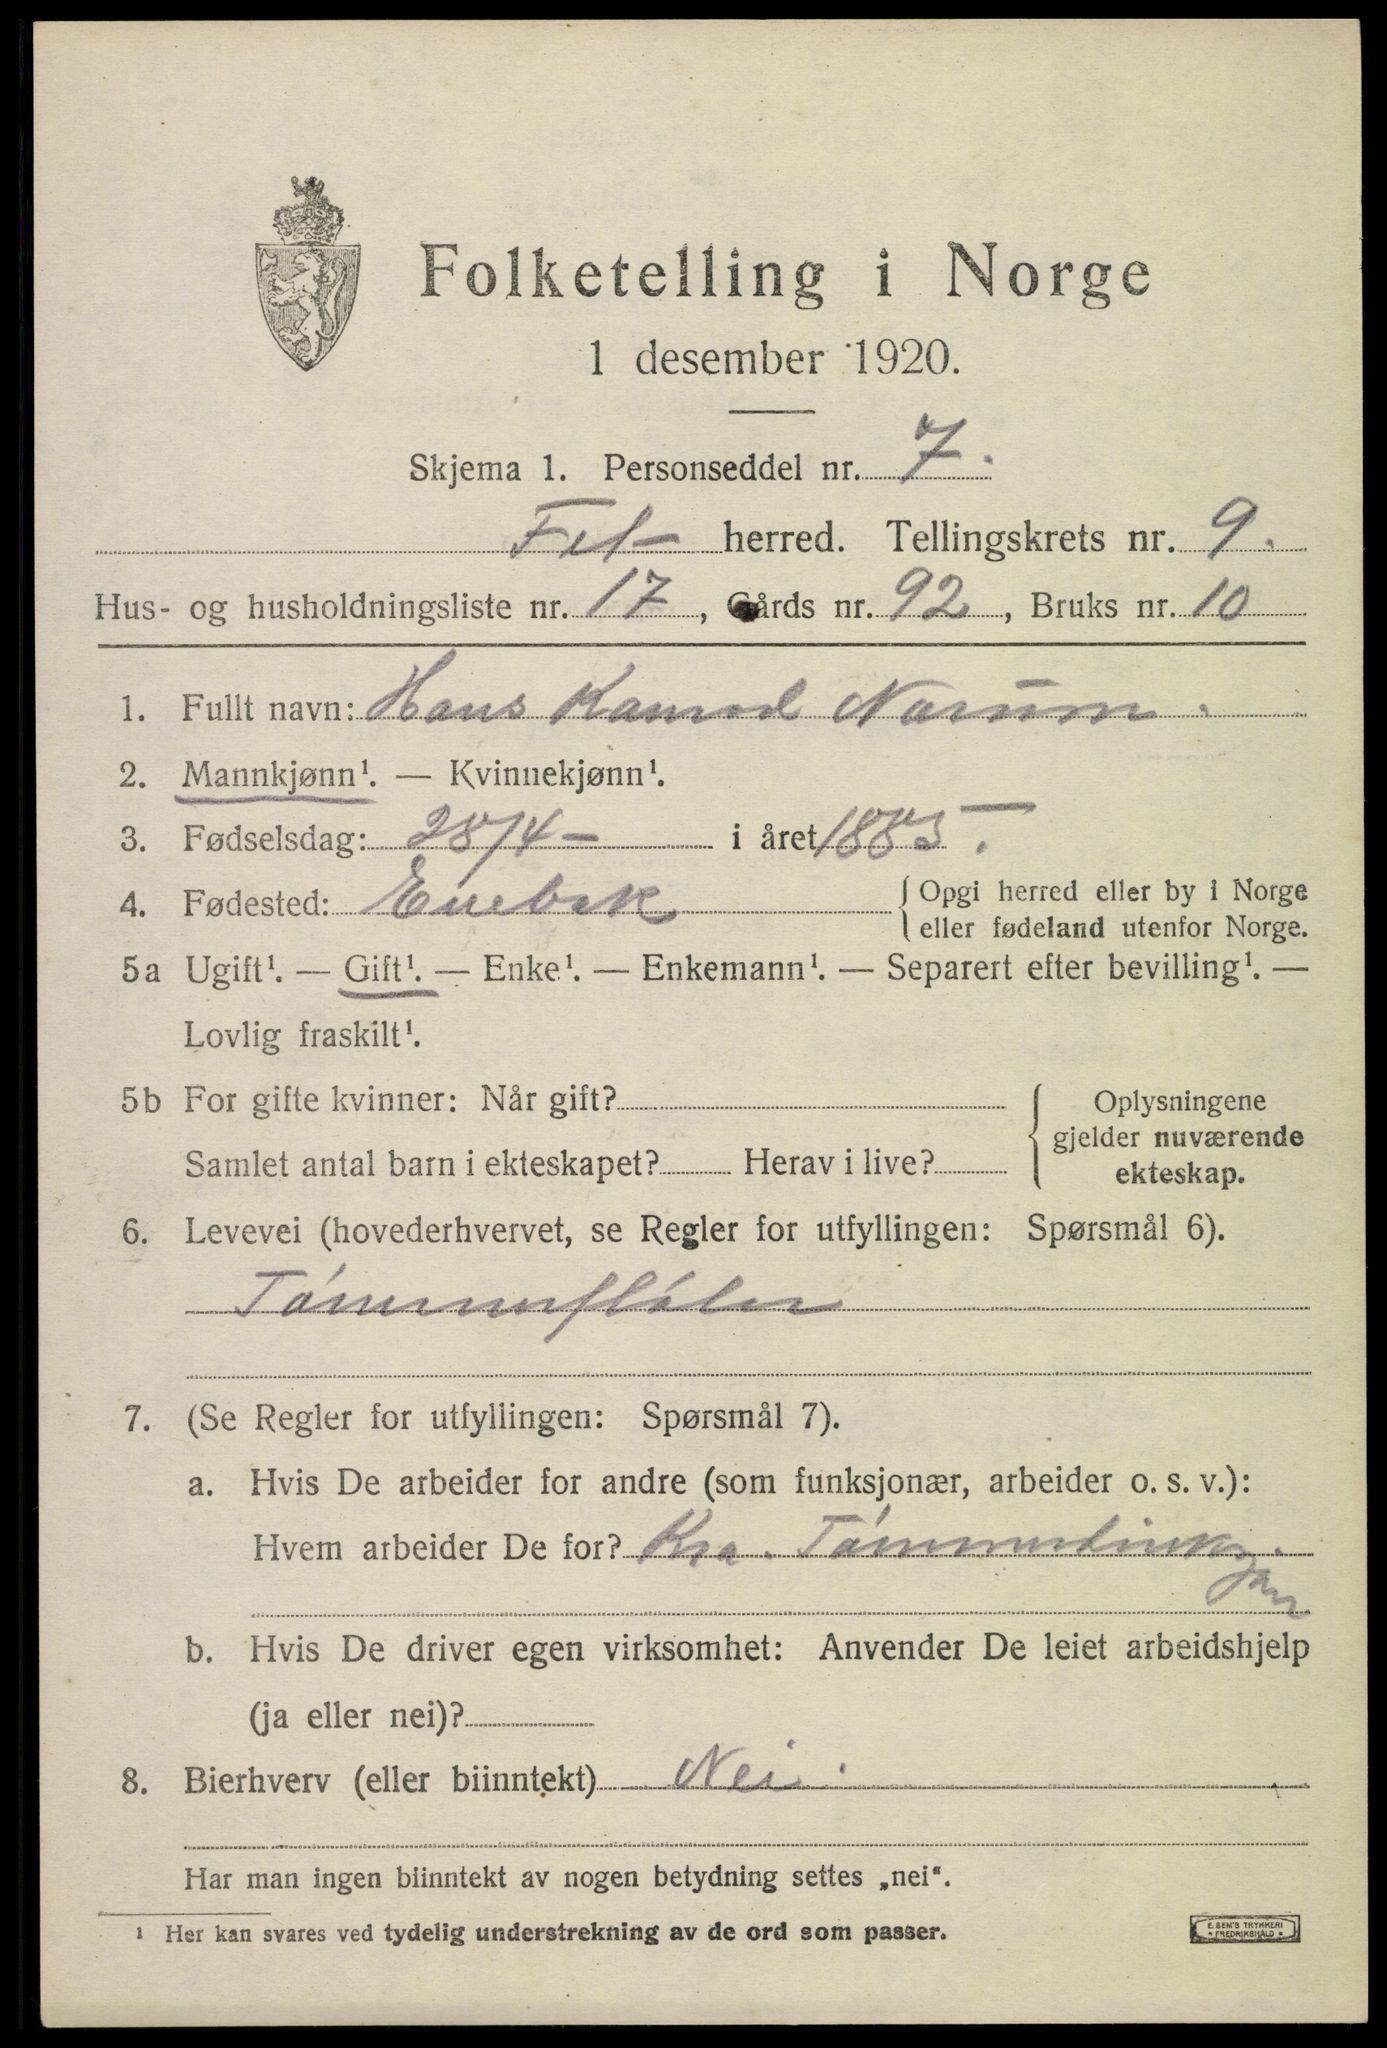 Folketelling i Norge
1 desember 1920.
Skjema 1. Personseddel nr. 7.
Fet herred. Tellingskrets nr. 9.
Hus- og husholdningsliste nr. 17, Gårds nr. 92, Bruks nr. 10
1. Fullt navn: Hans Konrad Narum.
2. Mannkjønn¹. — Kvinnekjønn¹.
3. Fødselsdag: 28/4 – i året 1885.
4. Fødested: Enebak { Opgi herred eller by i Norge
eller fødeland utenfor Norge.
5a Ugift¹. — Gift¹. — Enke¹. — Enkemann¹. — Separert efter bevilling¹. —
Lovlig fraskilt¹.
5b For gifte kvinner: Når gift? { Oplysningene
gjelder nuværende
Samlet antal barn i ekteskapet? Herav i live?
ekteskap.
6. Levevei (hovederhvervet, se Regler for utfyllingen: Spørsmål 6).
Tømmerfløter
7. (Se Regler for utfyllingen: Spørsmål 7).
a. Hvis De arbeider for andre (som funksjonær, arbeider o. s. v.):
Hvem arbeider De for? Kra. Tømmerdirek.
b. Hvis De driver egen virksomhet: Anvender De leiet arbeidshjelp
(ja eller nei)?
8. Bierhverv (eller biinntekt) Nei.
Har man ingen biinntekt av nogen betydning settes „nei“.
¹ Her kan svares ved tydelig understrekning av de ord som passer.
E. SEM'S TRYKKERI
* FREDRIKSHALD *